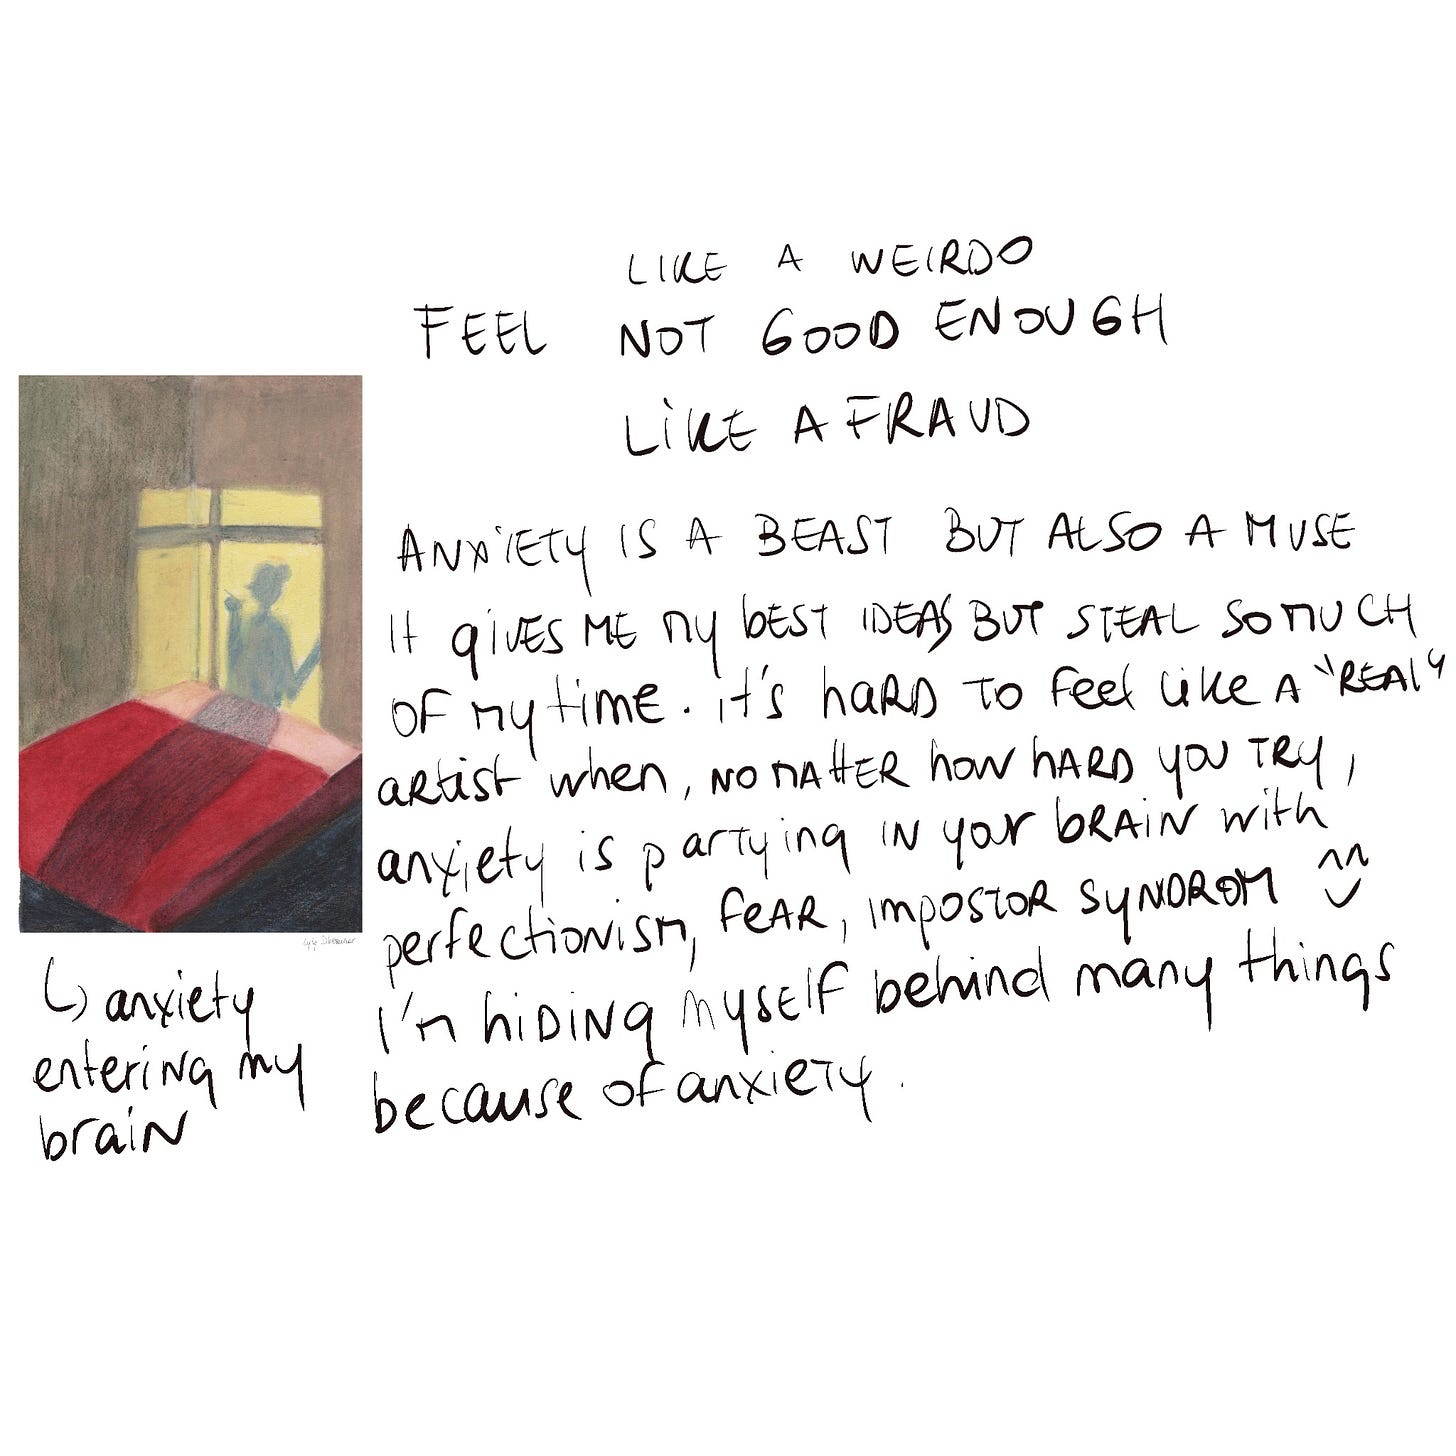 LIKE A WEIRDO
FEEL NOT GOOD ENOUGH
LiKE A FRAUD
ANXiETY IS A BEAST BUT ALSO A MUSE
It giVES ME my bEST IDEAS BUT STEAL SO MUCH
OF my time. it's hARD TO Feel like A "REAL"
artist when, NO MAttER how hARD yOU TRY,
anxiety is partying IN your bRAiN with
perfectioNism, FeAR, impOSTOR SyNDROM
I'm hiDiNg myself behind many things
because of anxiety.
anxiety
enteriNg my
braiN